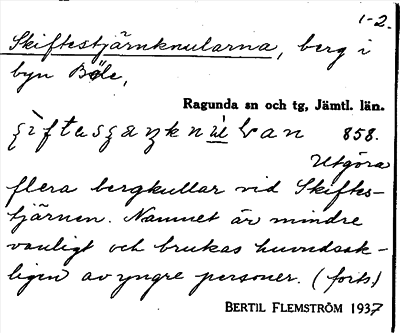 1-2.
Skiftestjärnknularna, berg i
byn Böle,
Ragunda sn och tg, Jämtl. län.
858.
Utgöra
flera bergkullar vid Skiftes-
tjärnen. Namnet är mindre
vanligt och brukas huvudsak-
ligen av yngre personer. (forts.)
BERTIL FLEMSTRÖM 1937